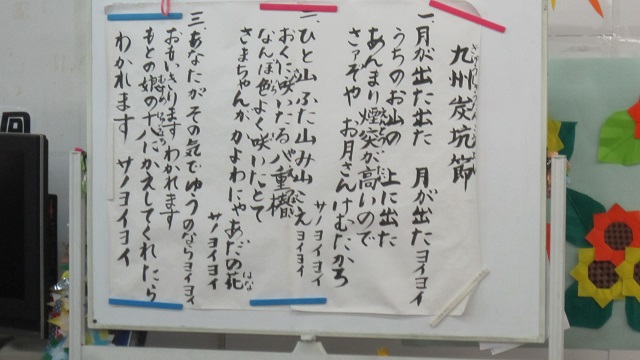 九州炭坑節
一、月が出た出た 月が出たヨイヨイ
うちのお山の 上に出た
あんまり煙突が高いので
さぞや お月さんけむたかろ
サノヨイヨイ
二、ひと山ふた山み山こえヨイヨイ
おくに咲いたる八重櫻
なんぼ色よく咲いたとて
さまちゃんがかよわにゃあだの花
サノヨイヨイ
三、あなたがその気でゆうのならヨイヨイ
おもいきりますわかれます
もとの娘の十八にかえしてくれたら
わかれます サノヨイヨイ